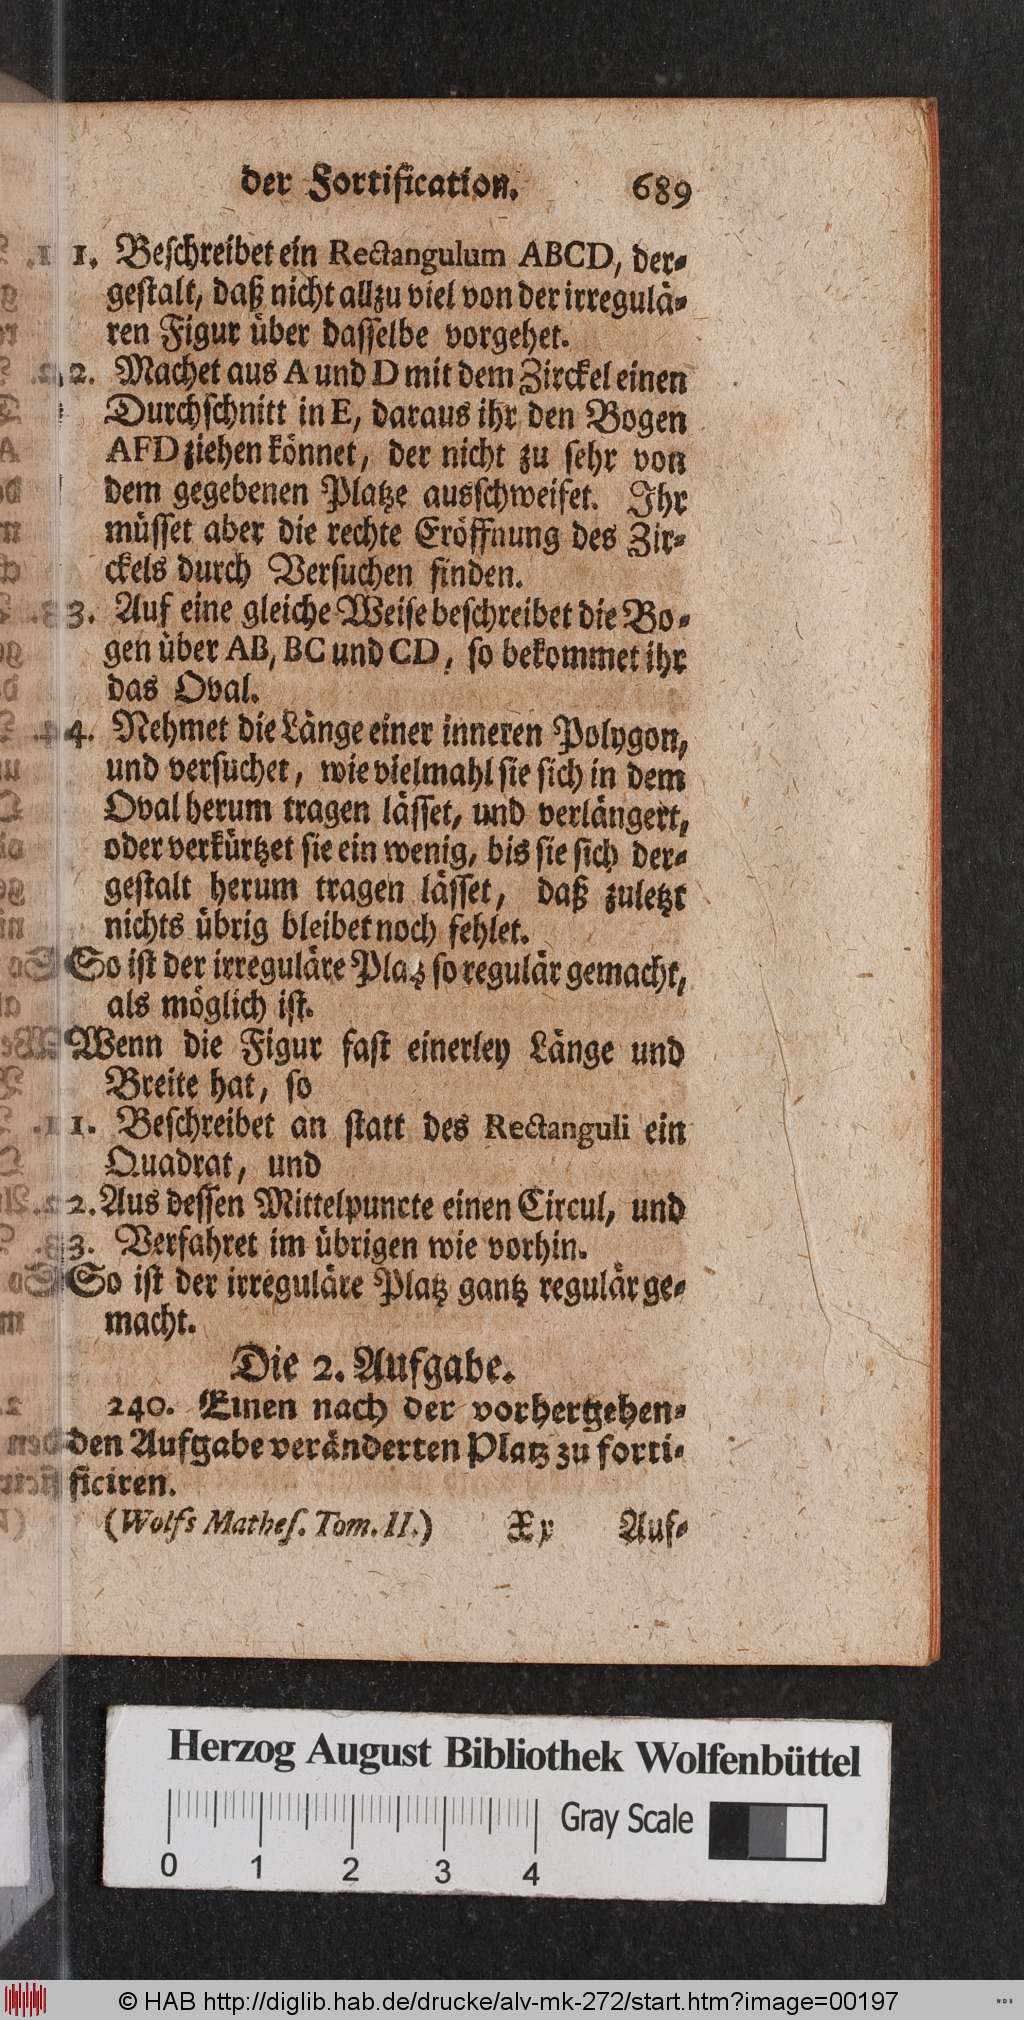 der Fortification. 689
1. Beschreibet ein Rectangulum ABCD, der-
gestalt, daß nicht allzu viel von der irregulä-
ren Figur über dasselbe vorgehet.
2. Machet aus A und D mit dem Zirckel einen
Durchschnitt in E, daraus ihr den Bogen
AFD ziehen könnet, der nicht zu sehr von
dem gegebenen Platze ausschweifet. Ihr
müsset aber die rechte Eröffnung des Zir-
ckels durch Versuchen finden.
3. Auf eine gleiche Weise beschreibet die Bo-
gen über AB, BC und CD, so bekommet ihr
das Oval.
4. Nehmet die Länge einer inneren Polygon,
und versuchet, wie vielmahl sie sich in dem
Oval herum tragen lässet, und verlängert,
oder verkürtzet sie ein wenig, bis sie sich der-
gestalt herum tragen lässet, daß zuletzt
nichts übrig bleibet noch fehlet.
So ist der irreguläre Platz so regulär gemacht,
als möglich ist.
Wenn die Figur fast einerley Länge und
Breite hat, so
1. Beschreibet an statt des Rectanguli ein
Quadrat, und
2. Aus dessen Mittelpuncte einen Circul, und
3. Verfahret im übrigen wie vorhin.
So ist der irreguläre Platz gantz regulär ge-
macht.
Die 2. Aufgabe.
240. Einen nach der vorhergehen-
den Aufgabe veränderten Platz zu forti-
ficiren.
(Wolfs Mathes. Tom. II.) Xx Auf-
Herzog August Bibliothek Wolfenbüttel
Gray Scale
0 1 2 3 4
© HAB http://diglib.hab.de/drucke/alv-mk-272/start.htm?image=00197